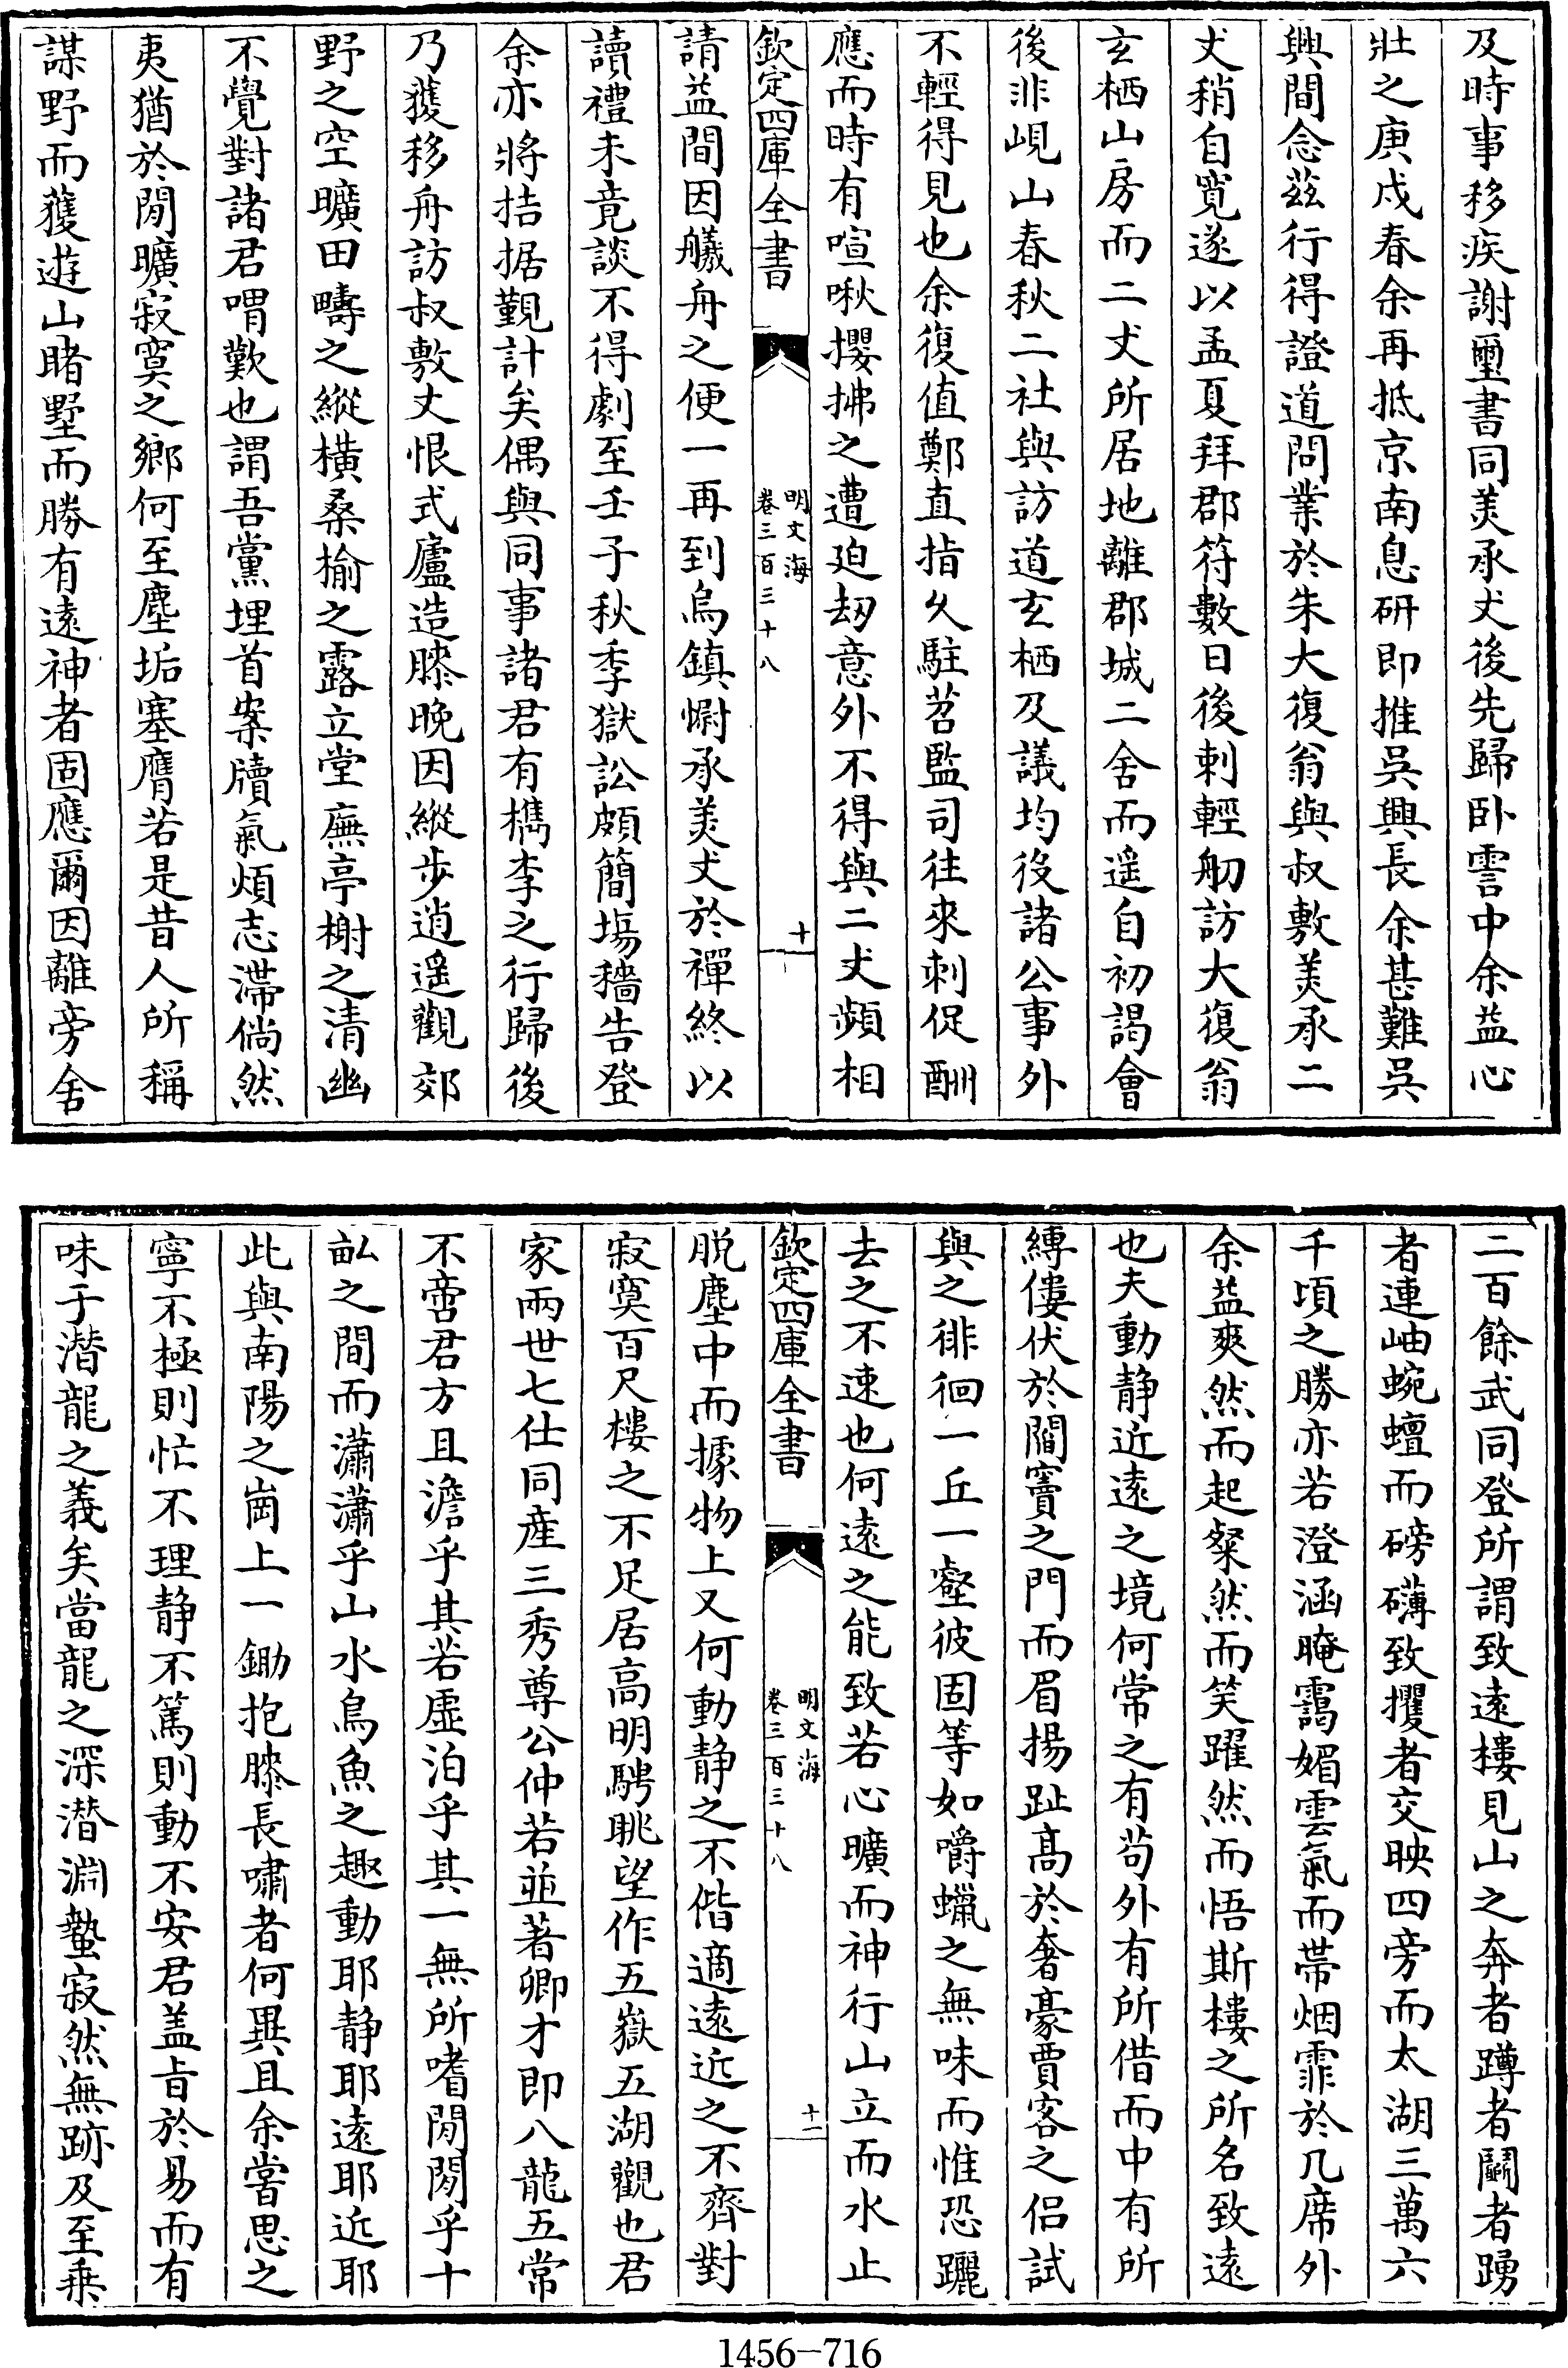 及時事移疾謝璽書同羙承丈後先歸卧霅中余益心
壯之庚戍春余再抵京南息研即推吳興長余甚難吳
興間念茲行得證道問業於朱大復翁與叔敷羙承二
丈稍自寛遂以孟夏拜郡符數日後剌輕舠訪大復翁
玄栖山房而二丈所居地離郡城二舍而遥自初謁會
後非峴山春秋二社與訪道玄栖及議均役諸公事外
不輕得見也余復值鄭直指久駐苕監司往來刺促酬
應而時有喧啾攖拂之遭廹刼意外不得與二丈頻相
欽定四庫全書
明文海
卷三百三十八
十
請益間因艤舟之便一再到烏鎮慰承羙丈於禪終以
讀禮未竟談不得劇至壬子秋季獄訟頗簡塲穡告登
余亦將拮据覲計矣偶與同事諸君有檇李之行歸後
乃獲移舟訪叔敷丈恨式廬造膝晚因縱步逍遥觀郊
野之空曠田疇之縱橫桑榆之露立堂廡亭榭之清幽
不覺對諸君喟歎也謂吾黨埋首案牘氣煩志滯倘然
夷猶於閒曠寂寞之鄉何至塵垢塞膺若是昔人所稱
謀野而獲遊山賭墅而勝有遠神者固應爾因離旁舍
二百餘武同登所謂致遠樓見山之奔者蹲者鬭者踴
者連岫蜿蟺而磅礴致攫者交映四旁而太湖三萬六
千頃之勝亦若澄涵晻靄媚雲氣而帶烟霏於几席外
余益爽然而起粲然而笑躍然而悟斯樓之所名致遠
也夫動静近遠之境何常之有茍外有所借而中有所
縛僂伏於閻竇之門而眉揚趾髙於奢豪賈客之侣試
與之徘徊一丘一壑彼固等如嚼蠟之無味而惟恐躧
去之不速也何遠之能致若心曠而神行山立而水止
欽定四庫全書
明文海
卷三百三十八
十一
脱塵中而據物上又何動静之不偕適遠近之不齊對
寂寞百尺樓之不足居高明騁眺望作五嶽五湖觀也君
家兩世七仕同産三秀尊公仲若並著卿才即八龍五常
不啻君方且澹乎其若虛泊乎其一無所嗜閒閒乎十
畝之間而瀟瀟乎山水鳥魚之趣動耶静耶遠耶近耶
此與南陽之崗上一鋤抱膝長嘯者何異且余嘗思之
寧不極則忙不理静不篤則動不安君盖㫖於易而有
味于潜龍之義矣當龍之深潜淵蟄寂然無跡及至乗
1456-716